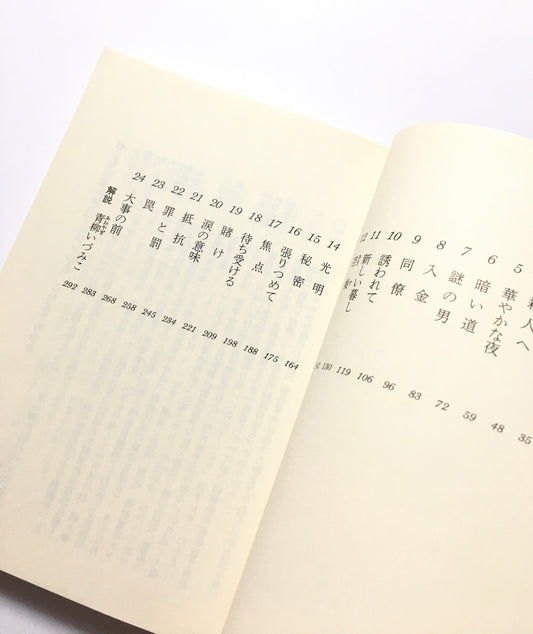 人へ
5 華やかな夜 35
6 暗い道 48
7 謎の男 59
8 入金 72
9 同僚 83
10 誘われて 96
11 新しい暮し 106
119
130
14 光明 164
15 秘密 175
16 張りつめて 188
17 焦点 198
18 待ち受ける 209
19 賭け 221
20 涙の意味 234
21 抵抗 245
22 罪と罰 258
23 罠 268
24 大事の前 283
解説 青柳いづみこ 292
あおやぎ